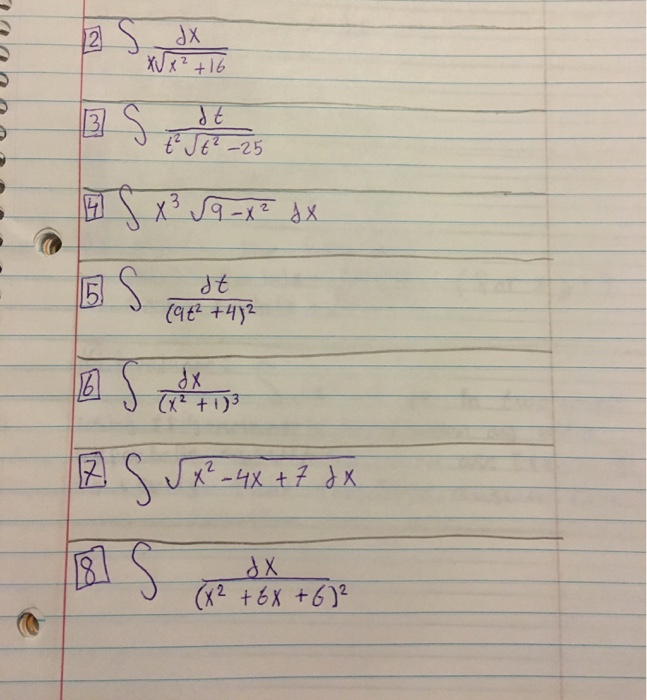 2 ∫ dx / (x√(x² + 16))
3 ∫ dt / (t²√(t² - 25))
4 ∫ x³ √(9 - x²) dx
5 ∫ dt / (9t² + 4)²
6 ∫ dx / (x² + 1)³
7 ∫ √(x² - 4x + 7 dx)
8 ∫ dx / (x² + 6x + 6)²